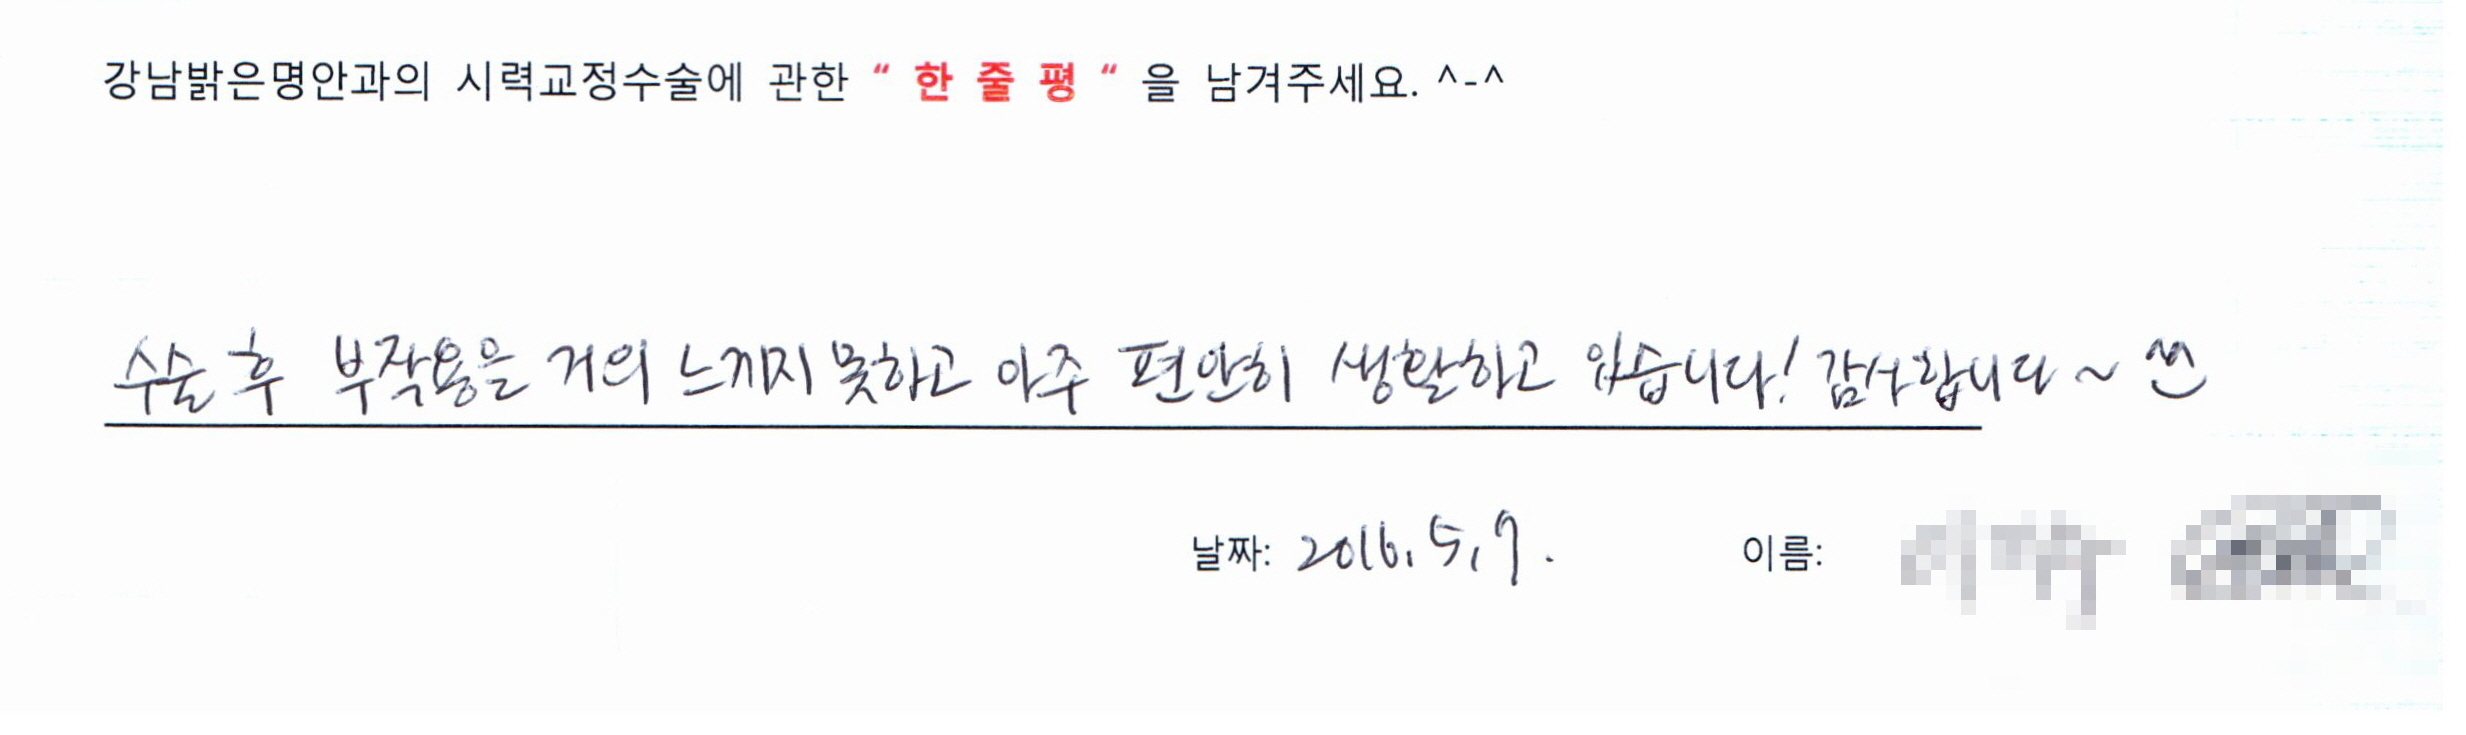 강남밝은명안과의 시력교정수술에 관한 “ 한 줄 평 “ 을 남겨주세요. ^-^
수술 후 부작용을 거의 느끼지 못하고 아주 편안히 생활하고 있습니다! 감사합니다~ ^^
날짜: 2016. 5. 7. 이름: